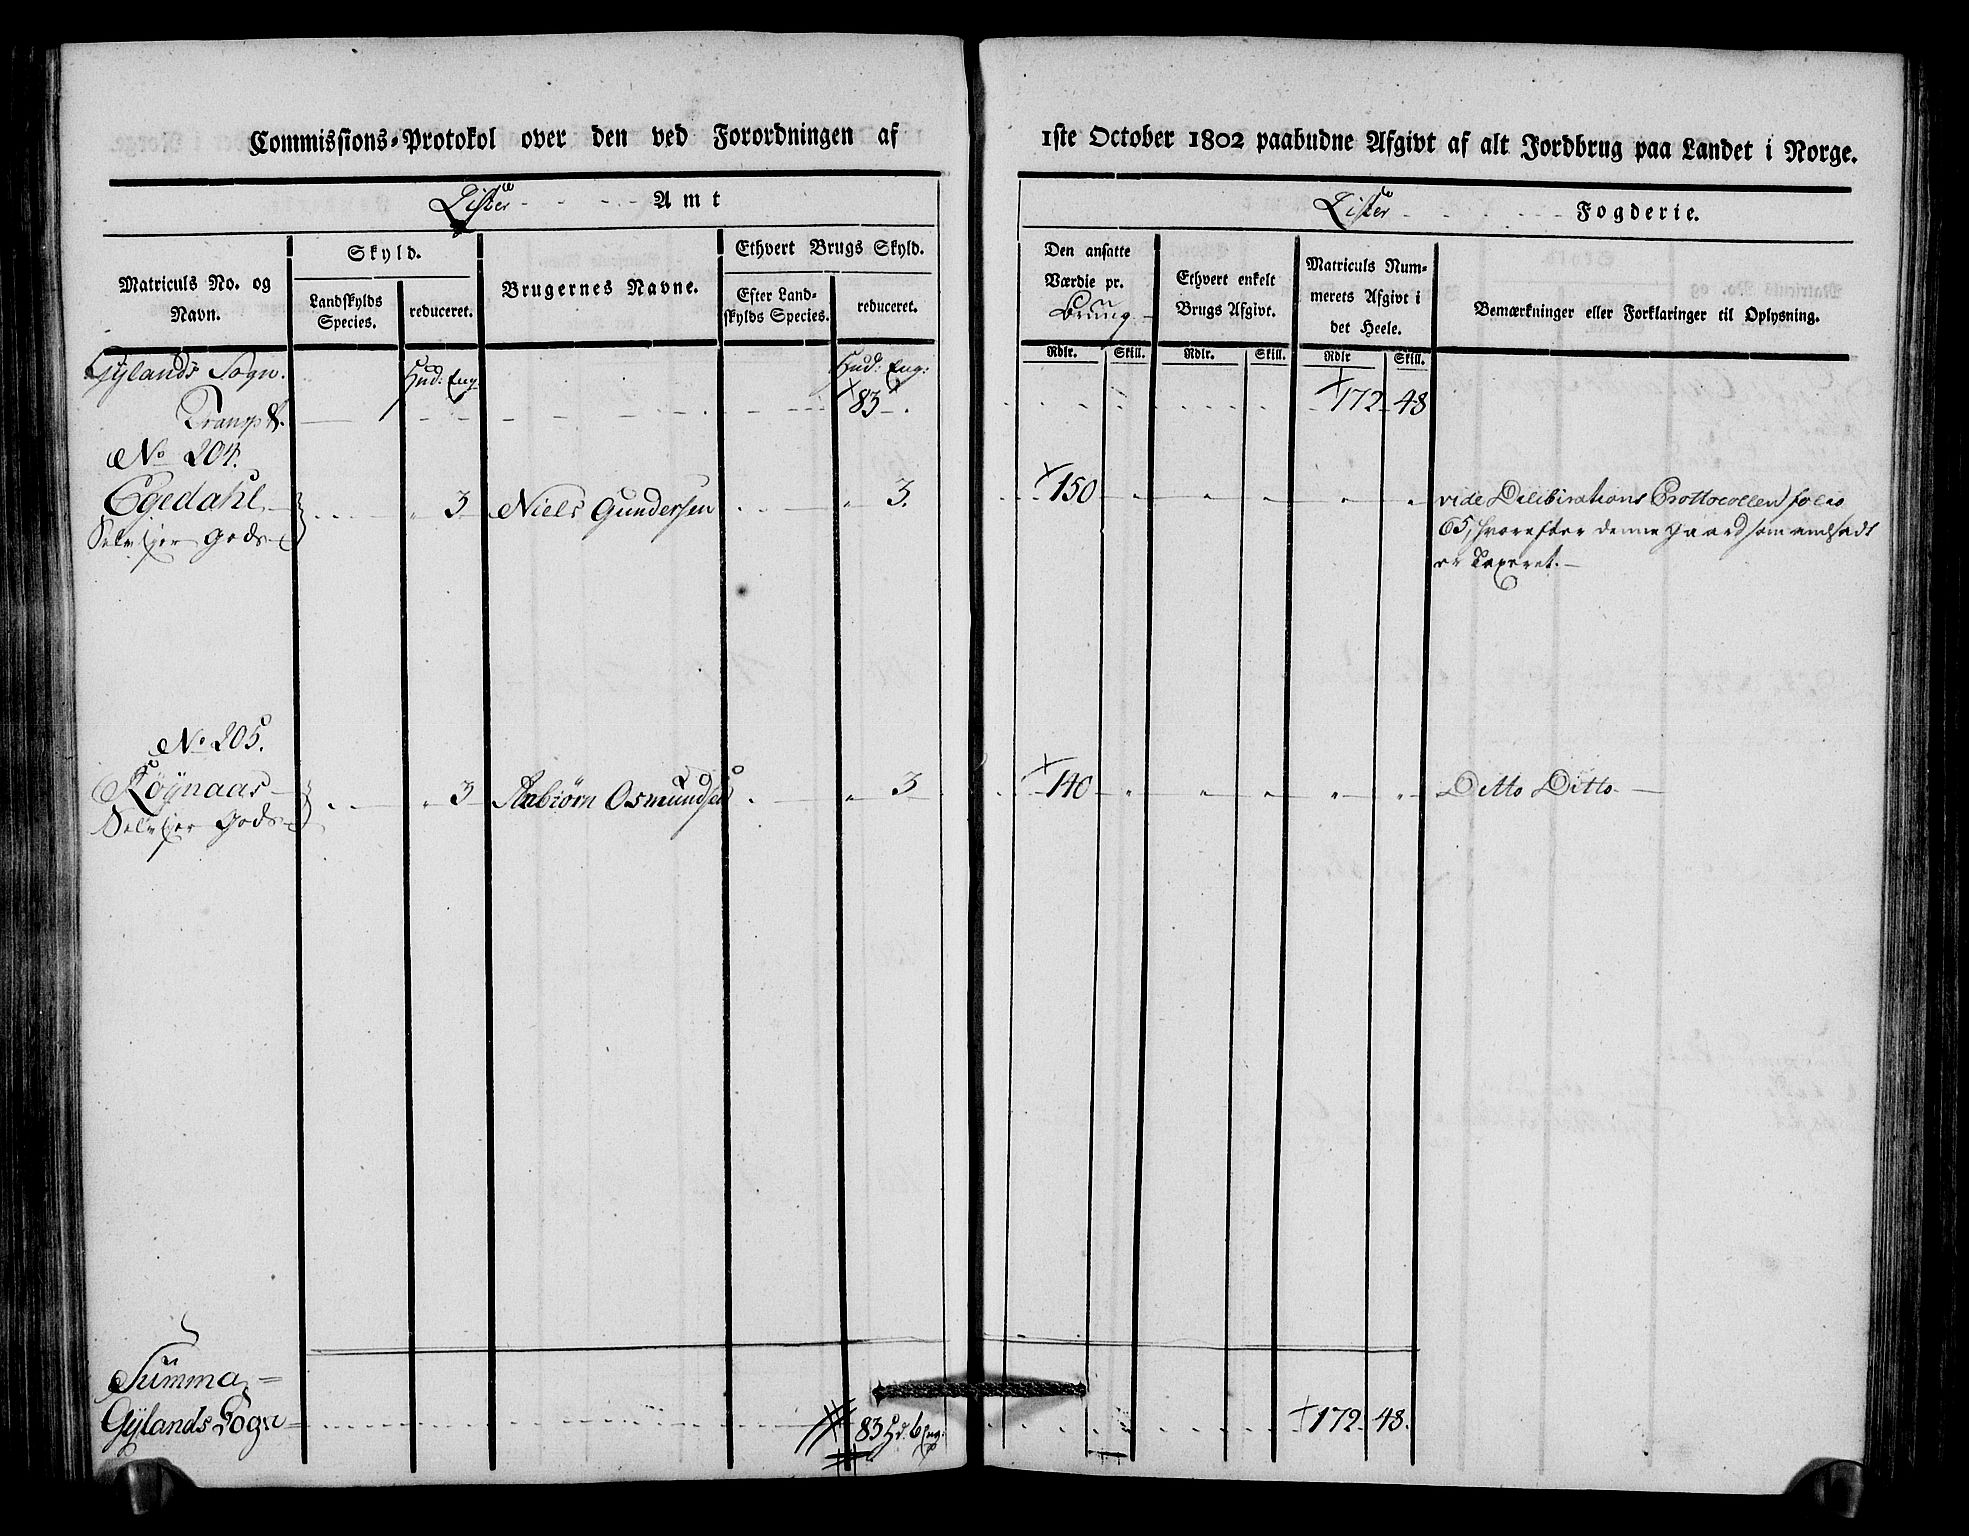 Commissions-Protokol over den ved Forordningen af
1ste October 1802 paabudne Afgivt af alt Jordbrug paa Landet i Norge.
Lister Amt
Lister Fogderie.
Matriculs No. og
Navn.
Skyld.
Landskylds
Species.
reduceret.
Brugernes Navne.
Ethvert Brugs Skyld.
Efter Land-
skylds Species.
reduceret.
Den ansatte
Værdie pr.
Brug
Ethvert enkelt
Brugs Afgivt.
Matriculs Num-
merets Afgivt i
det Heele.
Bemærkninger eller Forklaringer til Oplysning.
Rdlr. Skill. Rdlr. Skill. Rdlr Skill.
Gylands Sogn. Hud: Eng Hud: Eng:
Transpt. 83 172 48
No 204.
Egedahl 3 Niels Gundersen 3. 150 vide Deliberations Prottocollen folio
Selvejer Gods 65, hvorefter denne Gaard som andsadt
er Taxeret.
No 205.
Røynaas 3 Asbiørn Osmundsen 3 140 Ditto Ditto
Selvejer Gods
Summa
Gylands Sogn 83 Hd. 6 Eng: 172 48.